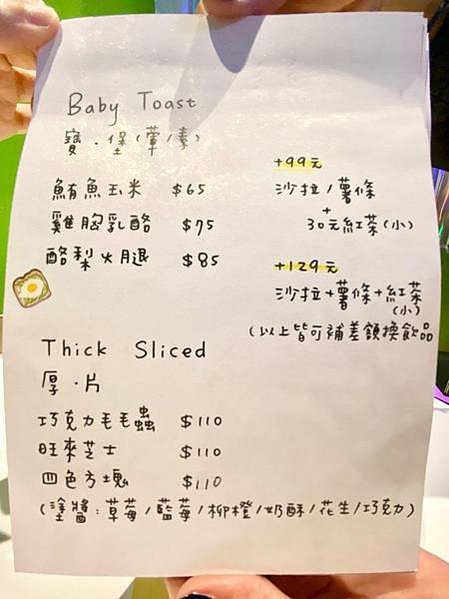 Baby Toast
寶．堡(葷/素)
鮪魚玉米 $65
雞胸乳酪 $75
酪梨火腿 $85
+99元
沙拉/薯條
+
30元紅茶(小)
+129元
沙拉+薯條+紅茶
(小)
(以上皆可補差額換飲品
Thick Sliced
厚．片
巧克力毛毛蟲 $110
旺來芝士 $110
四色方塊 $110
(塗醬:草莓/藍莓/柳橙/奶酥/花生/巧克力)